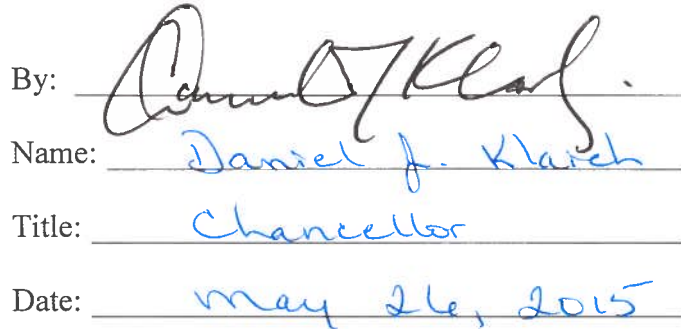 By: Daniel J Klaich
Name: Daniel J. Klaich
Title: Chancellor
Date: May 26, 2015